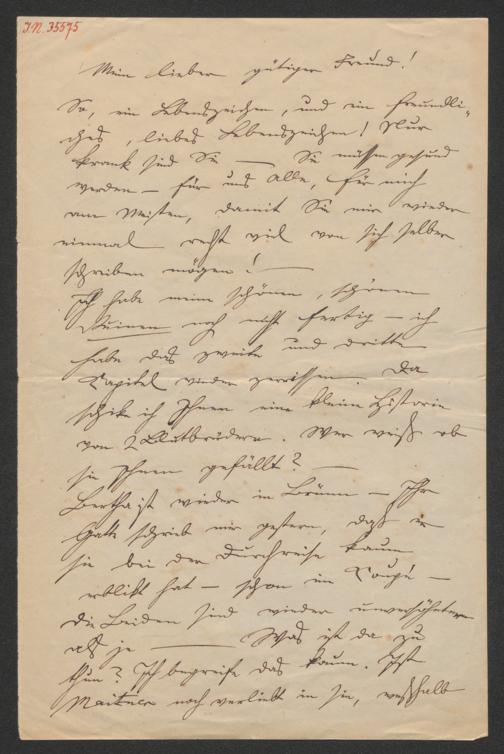 J.N. 35575
Mein lieber gütiger Freund!
So, ein Lebenszeichen, und ein freundli-
ches, liebes Lebenszeichen! Nur
krank sind Sie — Sie müssen gesund
werden — für uns Alle, für mich
am Meisten, damit Sie mir wieder
einmal recht viel von sich selber
schreiben mögen! —
Ich habe meine schönen, schönen
Ruinen noch nicht fertig — ich
habe das zweite und dritte
Capitel wieder zerrissen. Da
schike ich Ihnen eine kleine Historie
von 2 Blutbrüdern. Wer weiß ob
sie Ihnen gefällt? —
Bertha ist wieder in Brünn — Ihr
Gatte schrieb mir gestern, daß er
sie bei der Durchreise kaum
erblikt hat — schon im Coupé —
die Beiden sind wieder unversöhnter
als je — Was ist da zu
thun? Ich begreife das kaum. Ist
noch verliebt in sie, weßhalb